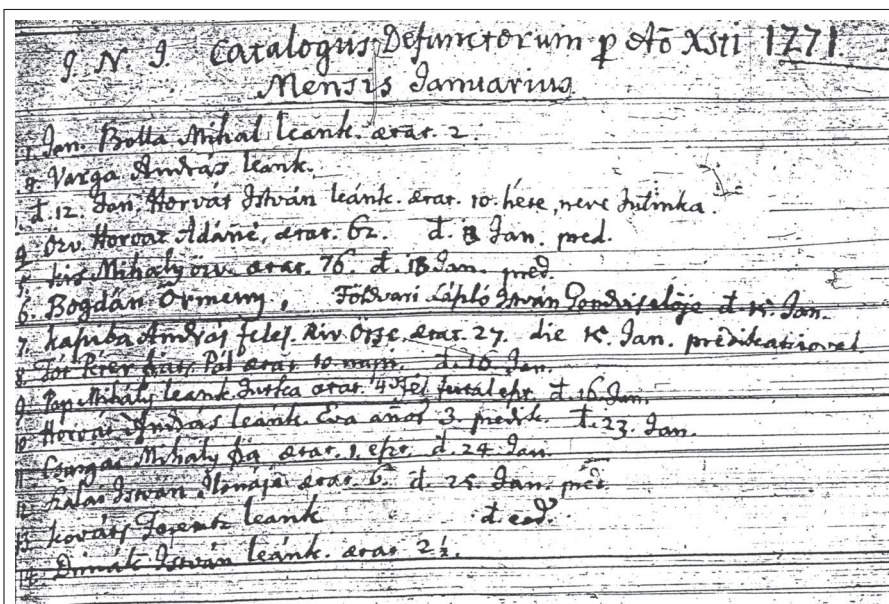 J. N. J. Catalogus Defunctorum p Aō Xsti 1771.
Mensis Januarius
1. Jan. Bolla Mihal leank. ætat. 2.
2. Varga András leank.
d. 12. Jan. Horvát István leánk. ætat. 10. hete, neve Julinka.
4. Özv. Horvát Ádáné, ætat. 62. d. 13 Jan. pred.
5. Kis Mihály özv. ætat. 76. d. 13 Jan. pred.
6. Bogdán Örmeny, Földvari László István Gondviselője d. 15. Jan.
7. Kapuba András feles. Kis Örse, ætat. 27. die 15. Jan. prédikatioval
8. Tót Péter Pál ætat. 10 d. 16 Jan.
9. Pap Mihály leank. Jutka ætat. 4 d. 16 Jan.
10. Horvát András leank. Eva años 3. predik. d. 23. Jan.
11. Mihaly fia, ætat. 1. d. 24 Jan.
12. István Ilonája ætat. 6. d. 25. Jan. pred.
13. Kováts Ferentz leank d. eod.
14. István leánk. ætat. 2½.